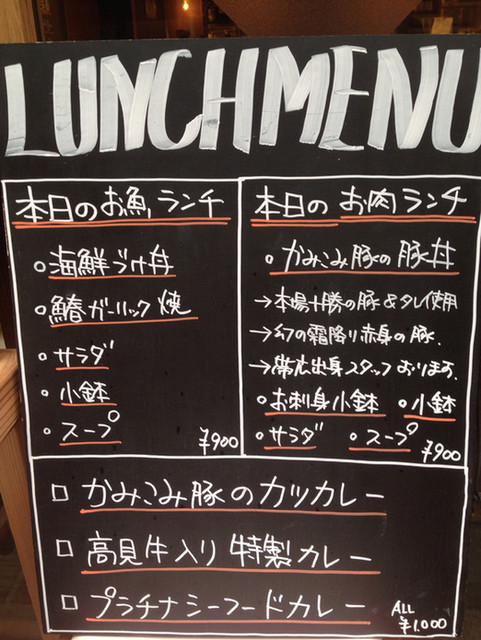 LUNCHMENU
本日のお魚ランチ
。海鮮づけ丼
。鰆ガーリック焼
。サラダ
。小鉢
。スープ
¥900
本日のお肉ランチ
。かみこみ豚の豚丼
→本場十勝の豚&タレ使用
→幻の霜降り赤身の豚.
→帯広出身スタッフおります.
。お刺身小鉢 。小鉢
。サラダ 。スープ
¥900
□ かみこみ豚のカツカレー
□ 高見牛入り特製カレー
□ プラチナシーフードカレー
ALL
¥1,000